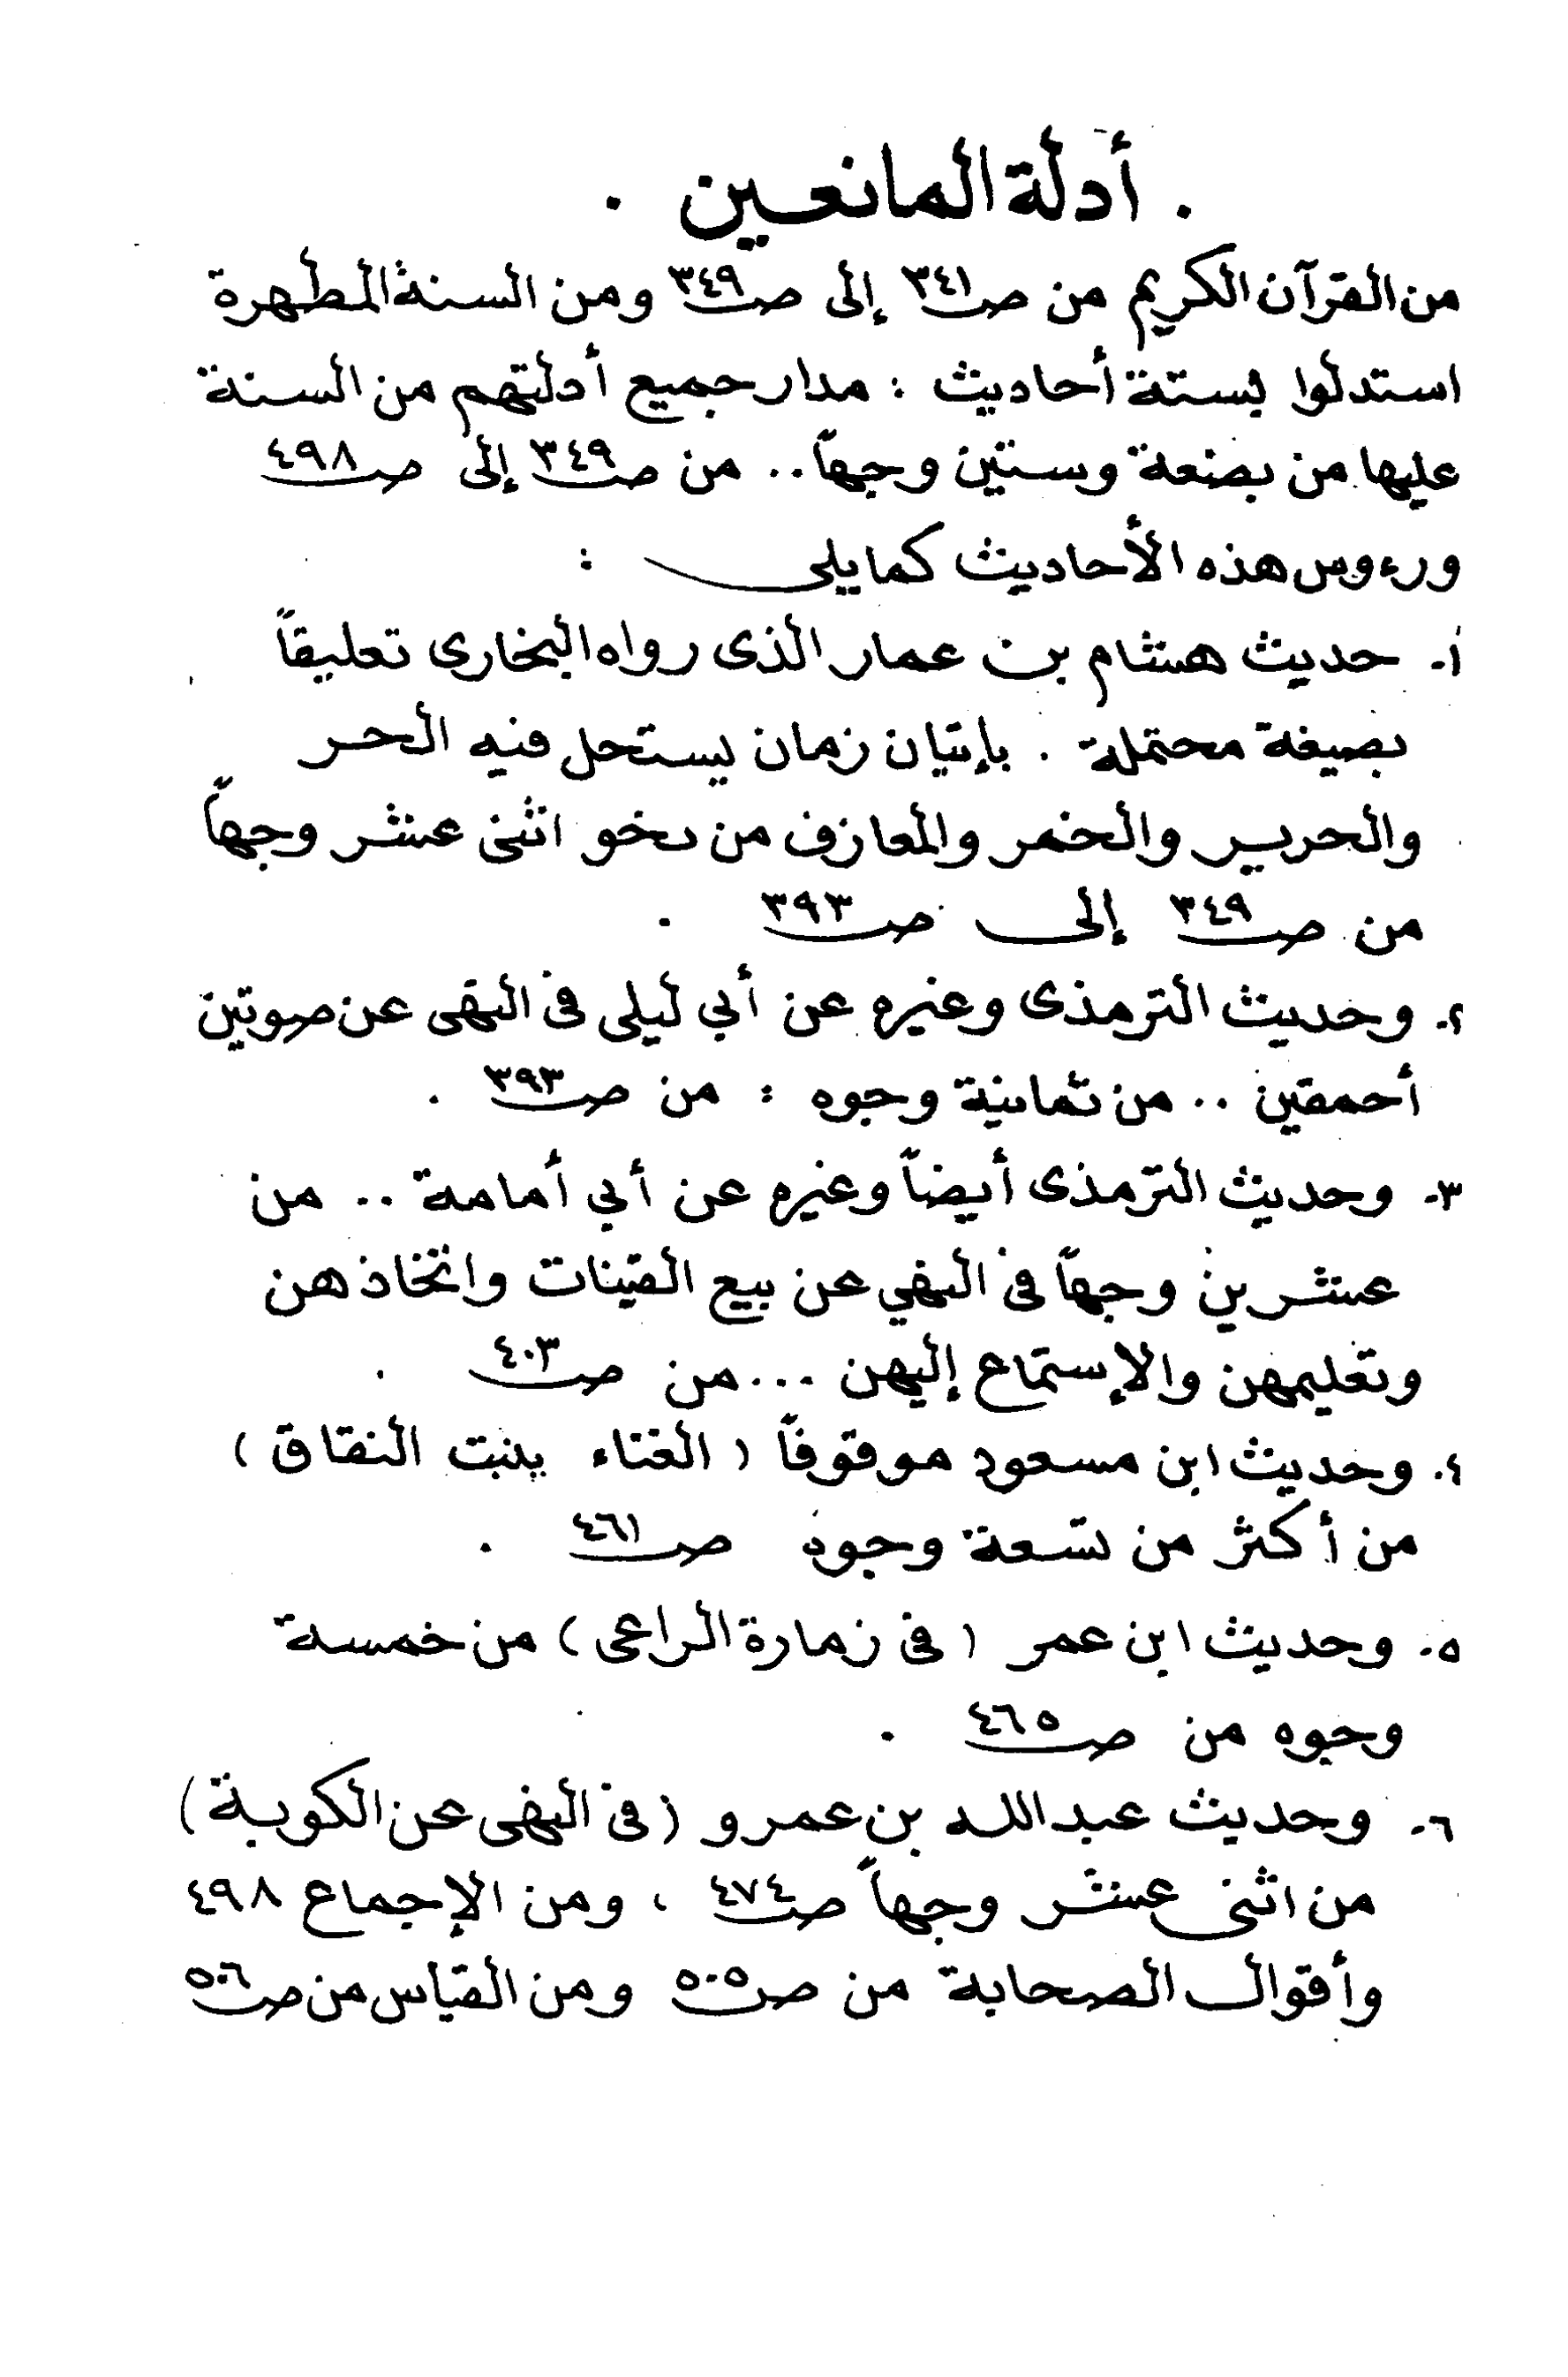 . أدلة المانعين .
من القرآن الكريم من ص٣٤١ إلى ص٣٤٩ ومن السنة المطهرة
استدلوا بستة أحاديث : مدار جميع أدلتهم من السنة
عليها من بضعة وستين وجهاً .. من ص٣٤٩ إلى ص٤٩٨
ورءوس هذه الأحاديث كما يلى :
١- حديث هشام بن عمار الذى رواه البخارى تعليقاً
بصيغة محتملة . بإتيان زمان يستحل فيه الحر
والحرير والخمر والمعازف من نحو اثنى عشر وجهاً
من ص٣٤٩ إلى ص٣٩٣ .
٢- وحديث الترمذى وغيره عن أبي ليلى فى النهى عن صوتين
أحمقين .. من ثمانية وجوه : من ص٣٩٣ .
٣- وحديث الترمذى أيضاً وغيره عن أبي أمامة .. من
عشرين وجهاً فى النهي عن بيع القينات واتخاذهن
وتعليمهن والإستماع إليهن ... من ص٤٠٣ .
٤- وحديث ابن مسعود موقوفاً ( الغناء ينبت النفاق )
من أكثر من تسعة وجوه ص٤٦١ .
٥- وحديث ابن عمر ( فى زمارة الراعى ) من خمسة
وجوه من ص٤٦٥ .
٦- وحديث عبد الله بن عمرو ( فى النهى عن الكوبة )
من اثنى عشر وجهاً ص٤٧٤ ، ومن الإجماع ٤٩٨
وأقوال الصحابة من ص٥٠٥ ومن القياس من ص٥٠٦